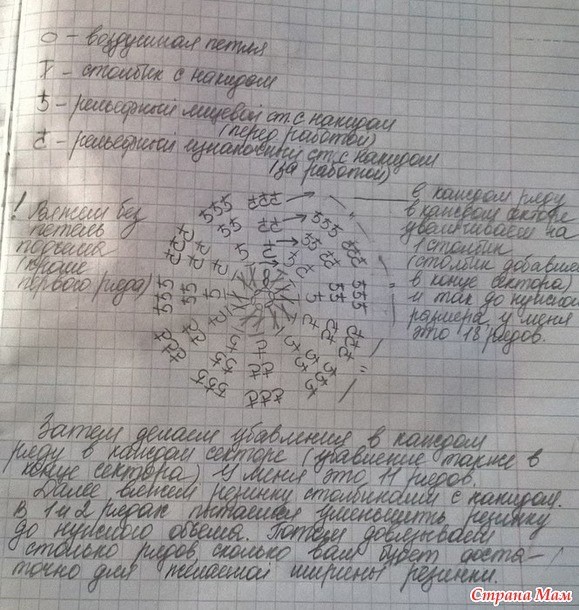 о – воздушная петля
– столбик с накидом
– рельефный лицевой ст. с накидом
(перед работой)
– рельефный изнаночный ст. с накидом
(за работой)
! Вяжем без
петель
подъема
(кроме
первого ряда)
в каждом ряду
в каждом секторе
увеличиваем на
1 столбик
(столбик добавляем
в конце сектора)
и так до нужного
размера, у меня
это 18 рядов.
Затем делаем убавления в каждом
ряду в каждом секторе (убавление также в
конце сектора) У меня это 11 рядов.
Далее вяжем резинку столбиками с накидом.
В 1 и 2 рядах пытаемся уменьшить резинку
до нужного объема. Потом довязываем
столько рядов, сколько вам будет доста-
точно для желаемой ширины резинки.
Страна Мам